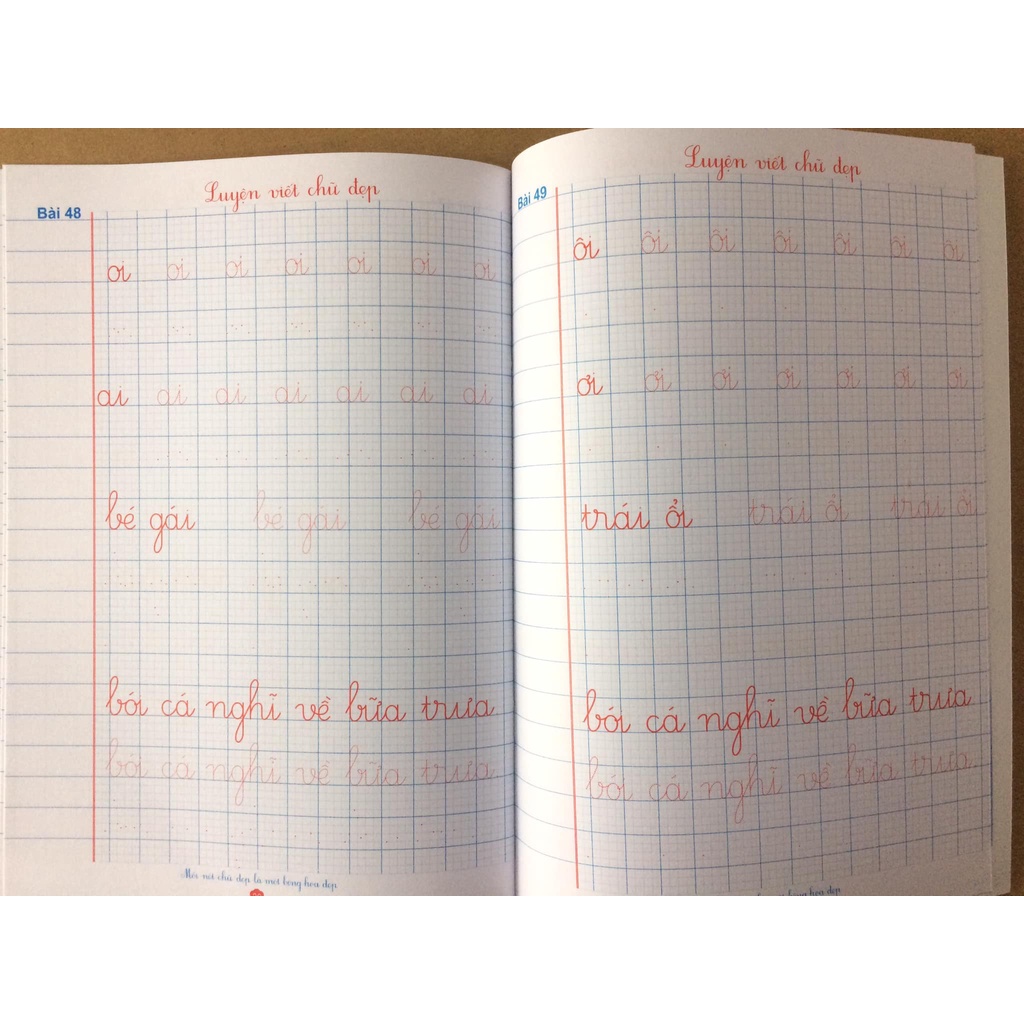 Luyện viết chữ đẹp
Bài 48
oi oi oi oi oi oi oi
ai ai ai ai ai ai ai
bé gái bé gái bé gái
bói cá nghĩ về bữa trưa
bói cá nghĩ về bữa trưa
Mỗi nét chữ đẹp là một bông hoa đẹp
Luyện viết chữ đẹp
Bài 49
ôi ôi ôi ôi ôi ôi ôi
ơi ơi ơi ơi ơi ơi ơi
trái ổi trái ổi trái ổi
bói cá nghĩ về bữa trưa
bói cá nghĩ về bữa trưa
bông hoa đẹp